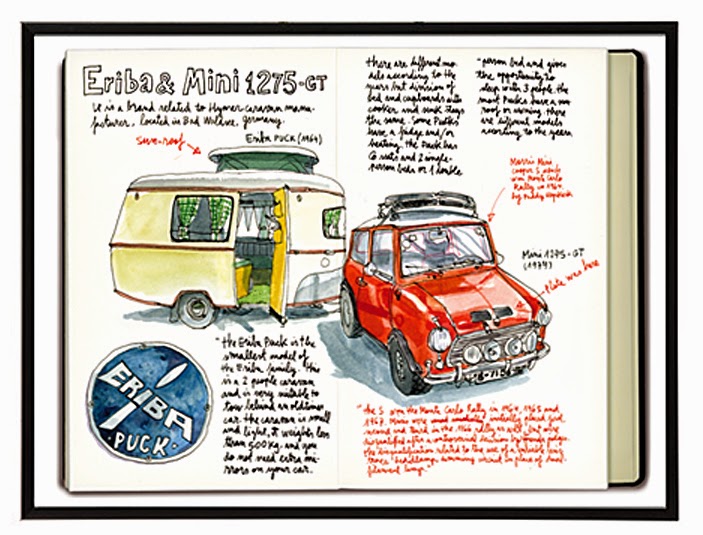 Eriba & Mini 1275-GT
it is a brand related to Hymer-caravan manu-
facturer, located in Bad Waldsee, Germany.
sun-roof
Eriba PUCK (1964)
there are different mo-
dels according to the
years but division of
bed and cupboards with
cooker and sink stays
the same. Some Pucks
have a fridge and/or
heating. the Puck has
seats and 2 single-
person beds or 1 double
-person bed and gives
the opportunity to
sleep with 3 people. the
most Pucks have a sun
roof or awning. there
are different models
according to the years
Morris Mini
Cooper S which
won Monte Carlo
Rally in 1964
by Paddy Hopkirk
Mini 1275-GT
(1977)
plate was here
ERIBA
PUCK
"the Eriba Puck is the
smallest model of
the Eriba family. this
is a 2 people caravan
and is very suitable to
tow behind an oldtimer
car. the caravan is small
and light, it weights less
than 500kg. and you
do not need extra mi-
rrors on your car.
"the S won the Monte Carlo Rally in 1964, 1965 and
1967. Minis were
second and third in the 1966 rally as well, but were
disqualified after a controversial decision by
the disqualification related to the use of a variable
dimming circuit in place of
filament lamp."